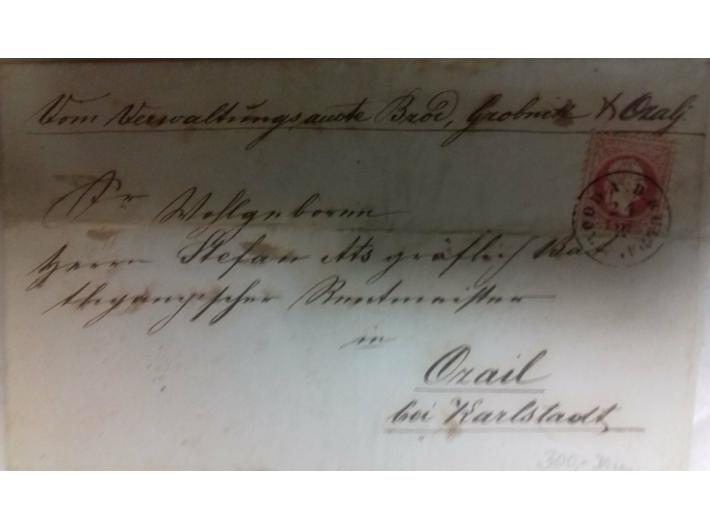 Vom Verwaltungsamte Brod, Grobnik & Ozalj
Sr Wohlgeboren
Herrn Stefan Ats gräflich Bat
thyanyischer Rentmeister
in
Ozail
bei Karlstadt
300,-